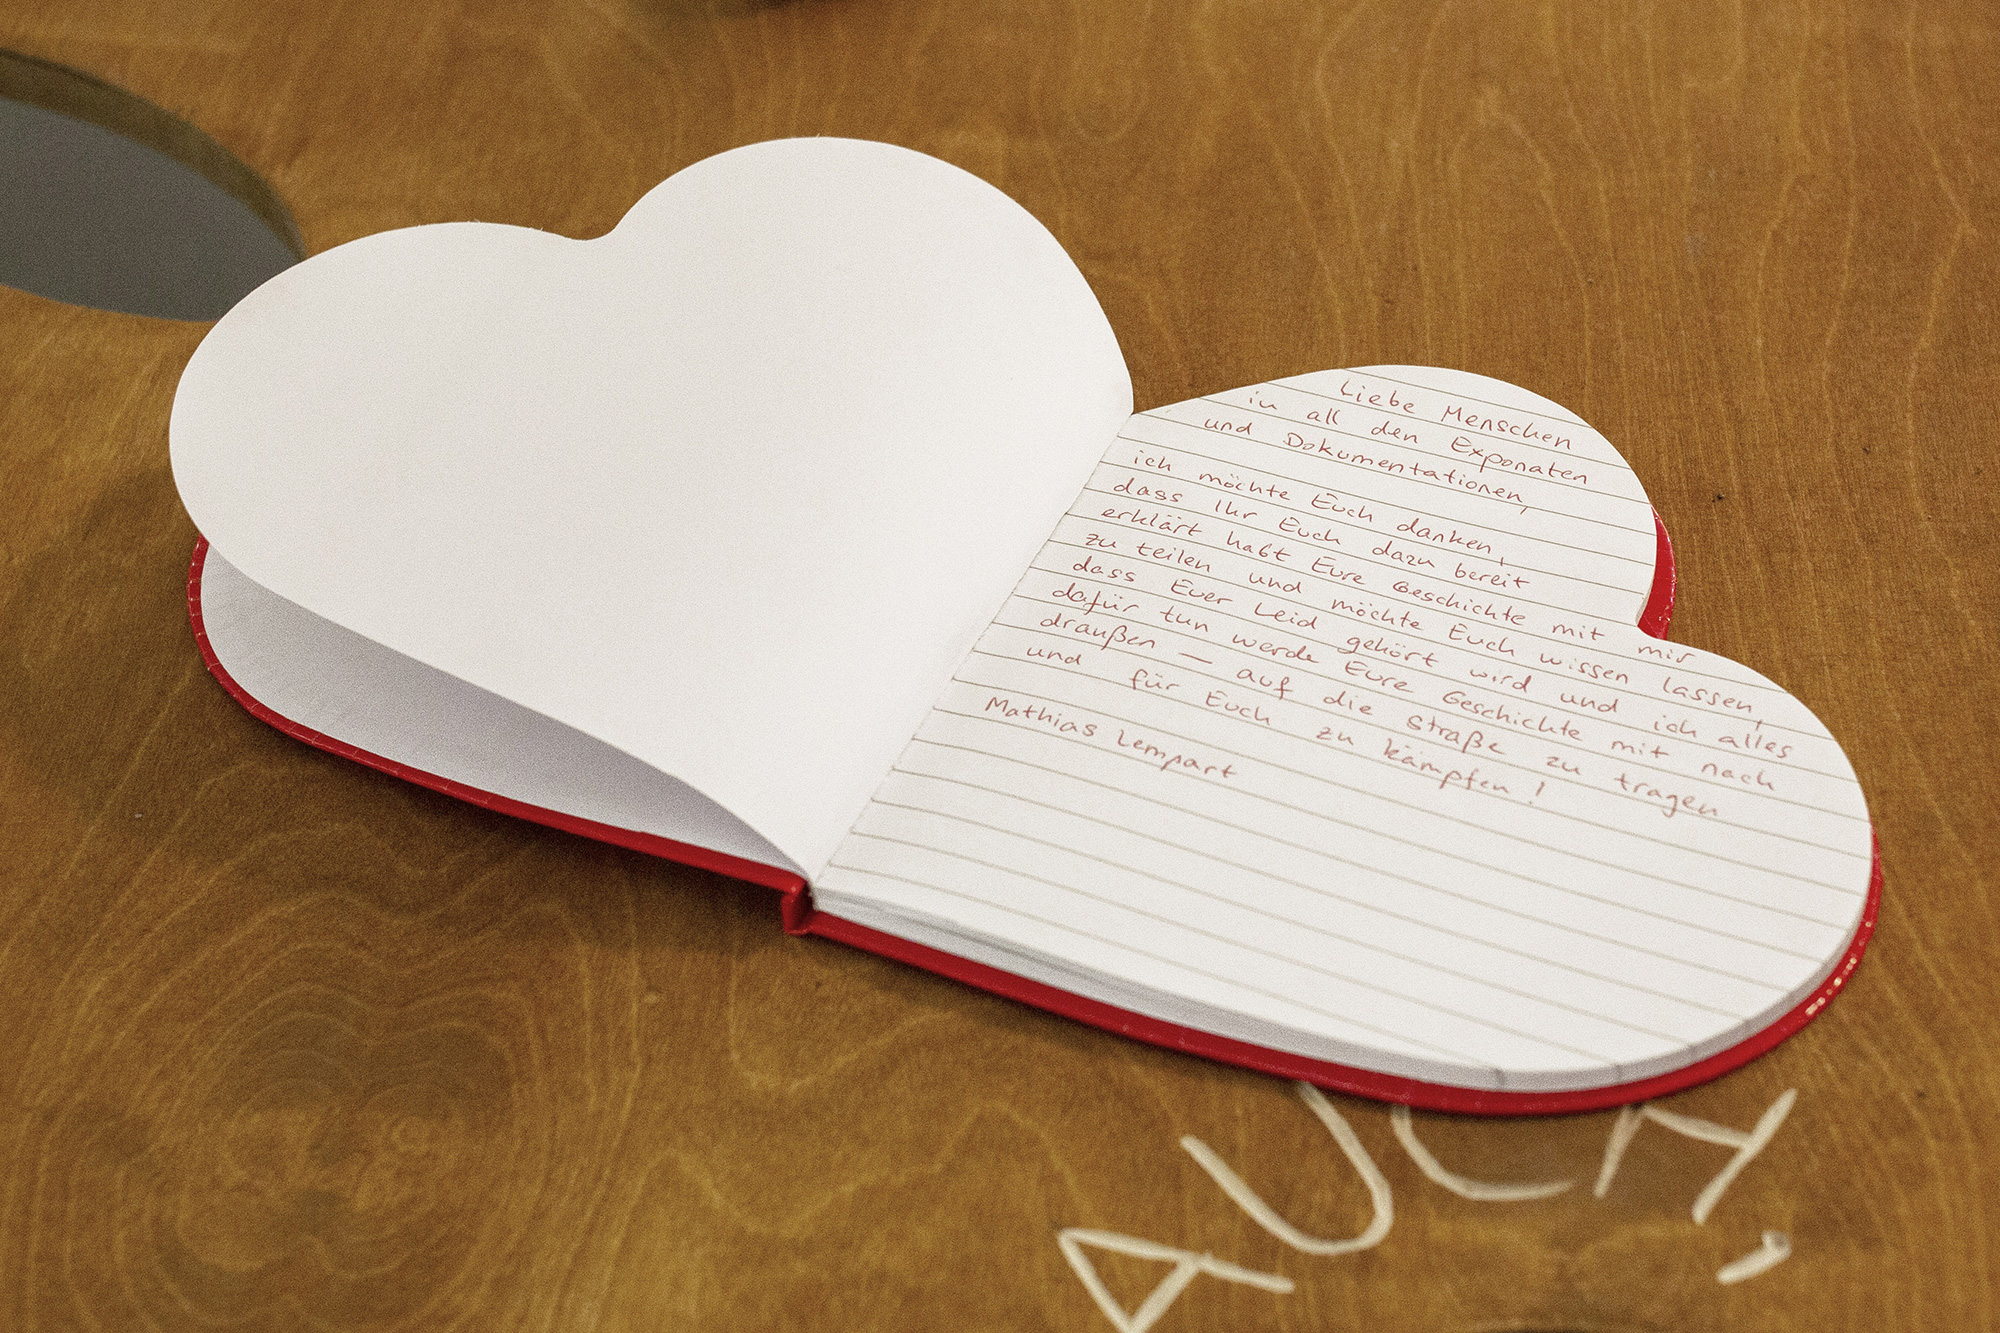 Liebe Menschen
in all den Exponaten
und Dokumentationen,
ich möchte Euch danken,
dass Ihr Euch dazu bereit
erklärt habt Eure Geschichte mit mir
zu teilen und möchte Euch wissen lassen,
dass Euer Leid gehört wird und ich alles
dafür tun werde Eure Geschichte mit nach
draußen – auf die Straße zu tragen
und für Euch zu kämpfen!
Mathias Lempart
AUCH,